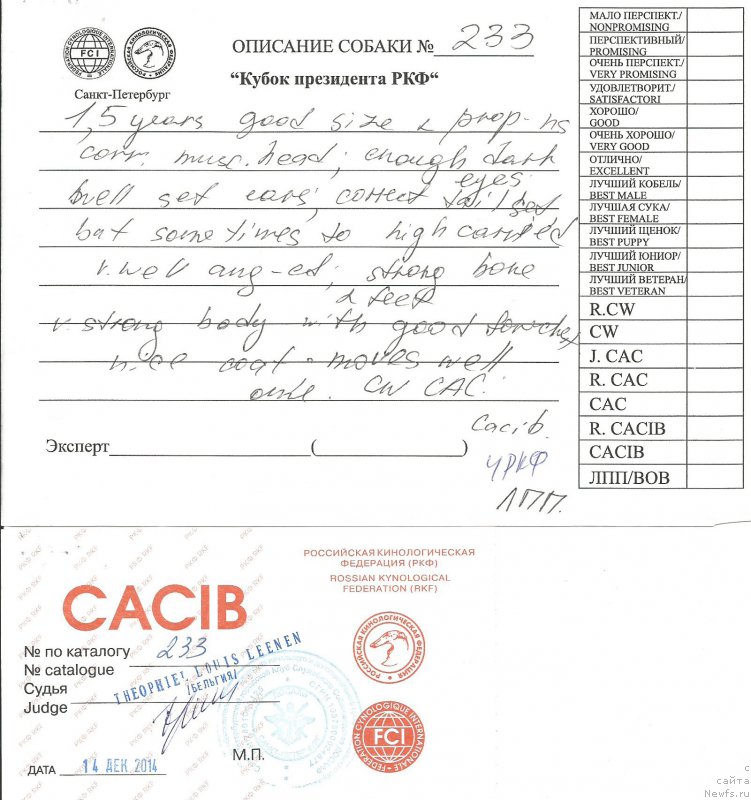 ОПИСАНИЕ СОБАКИ № 233
"Кубок президента РКФ"
FCI
Санкт-Петербург
1,5 years good size & prop-ns
corr. musc. head; enough dark
eyes
well set ears; correct tail set
but sometimes to high carried
v. well ang-ed; strong bone
& feet
v. strong body with good forechest
nice coat - moves well
отл. CW CAC.
Cacib.
ЧРКФ
ЛПП.
Эксперт (                    )
МАЛО ПЕРСПЕКТ./
NONPROMISING
ПЕРСПЕКТИВНЫЙ/
PROMISING
ОЧЕНЬ ПЕРСПЕКТ./
VERY PROMISING
УДОВЛЕТВОРИТ./
SATISFACTORI
ХОРОШО/
GOOD
ОЧЕНЬ ХОРОШО/
VERY GOOD
ОТЛИЧНО/
EXCELLENT
ЛУЧШИЙ КОБЕЛЬ/
BEST MALE
ЛУЧШАЯ СУКА/
BEST FEMALE
ЛУЧШИЙ ЩЕНОК/
BEST PUPPY
ЛУЧШИЙ ЮНИОР/
BEST JUNIOR
ЛУЧШИЙ ВЕТЕРАН/
BEST VETERAN
R.CW
CW
J. CAC
R. CAC
CAC
R. CACIB
CACIB
ЛПП/BOB
РОССИЙСКАЯ КИНОЛОГИЧЕСКАЯ
ФЕДЕРАЦИЯ (РКФ)
ROSSIAN KYNOLOGICAL
FEDERATION (RKF)
CACIB
№ по каталогу 233
№ catalogue
Судья
Judge
THEOPHIEL LOUIS LEENEN
(БЕЛЬГИЯ)
М.П.
ДАТА 14 ДЕК 2014
РОССИЙСКАЯ КИНОЛОГИЧЕСКАЯ ФЕДЕРАЦИЯ
FEDERATION CYNOLOGIQUE INTERNATIONALE
FCI
с
сайта
Newfs.ru